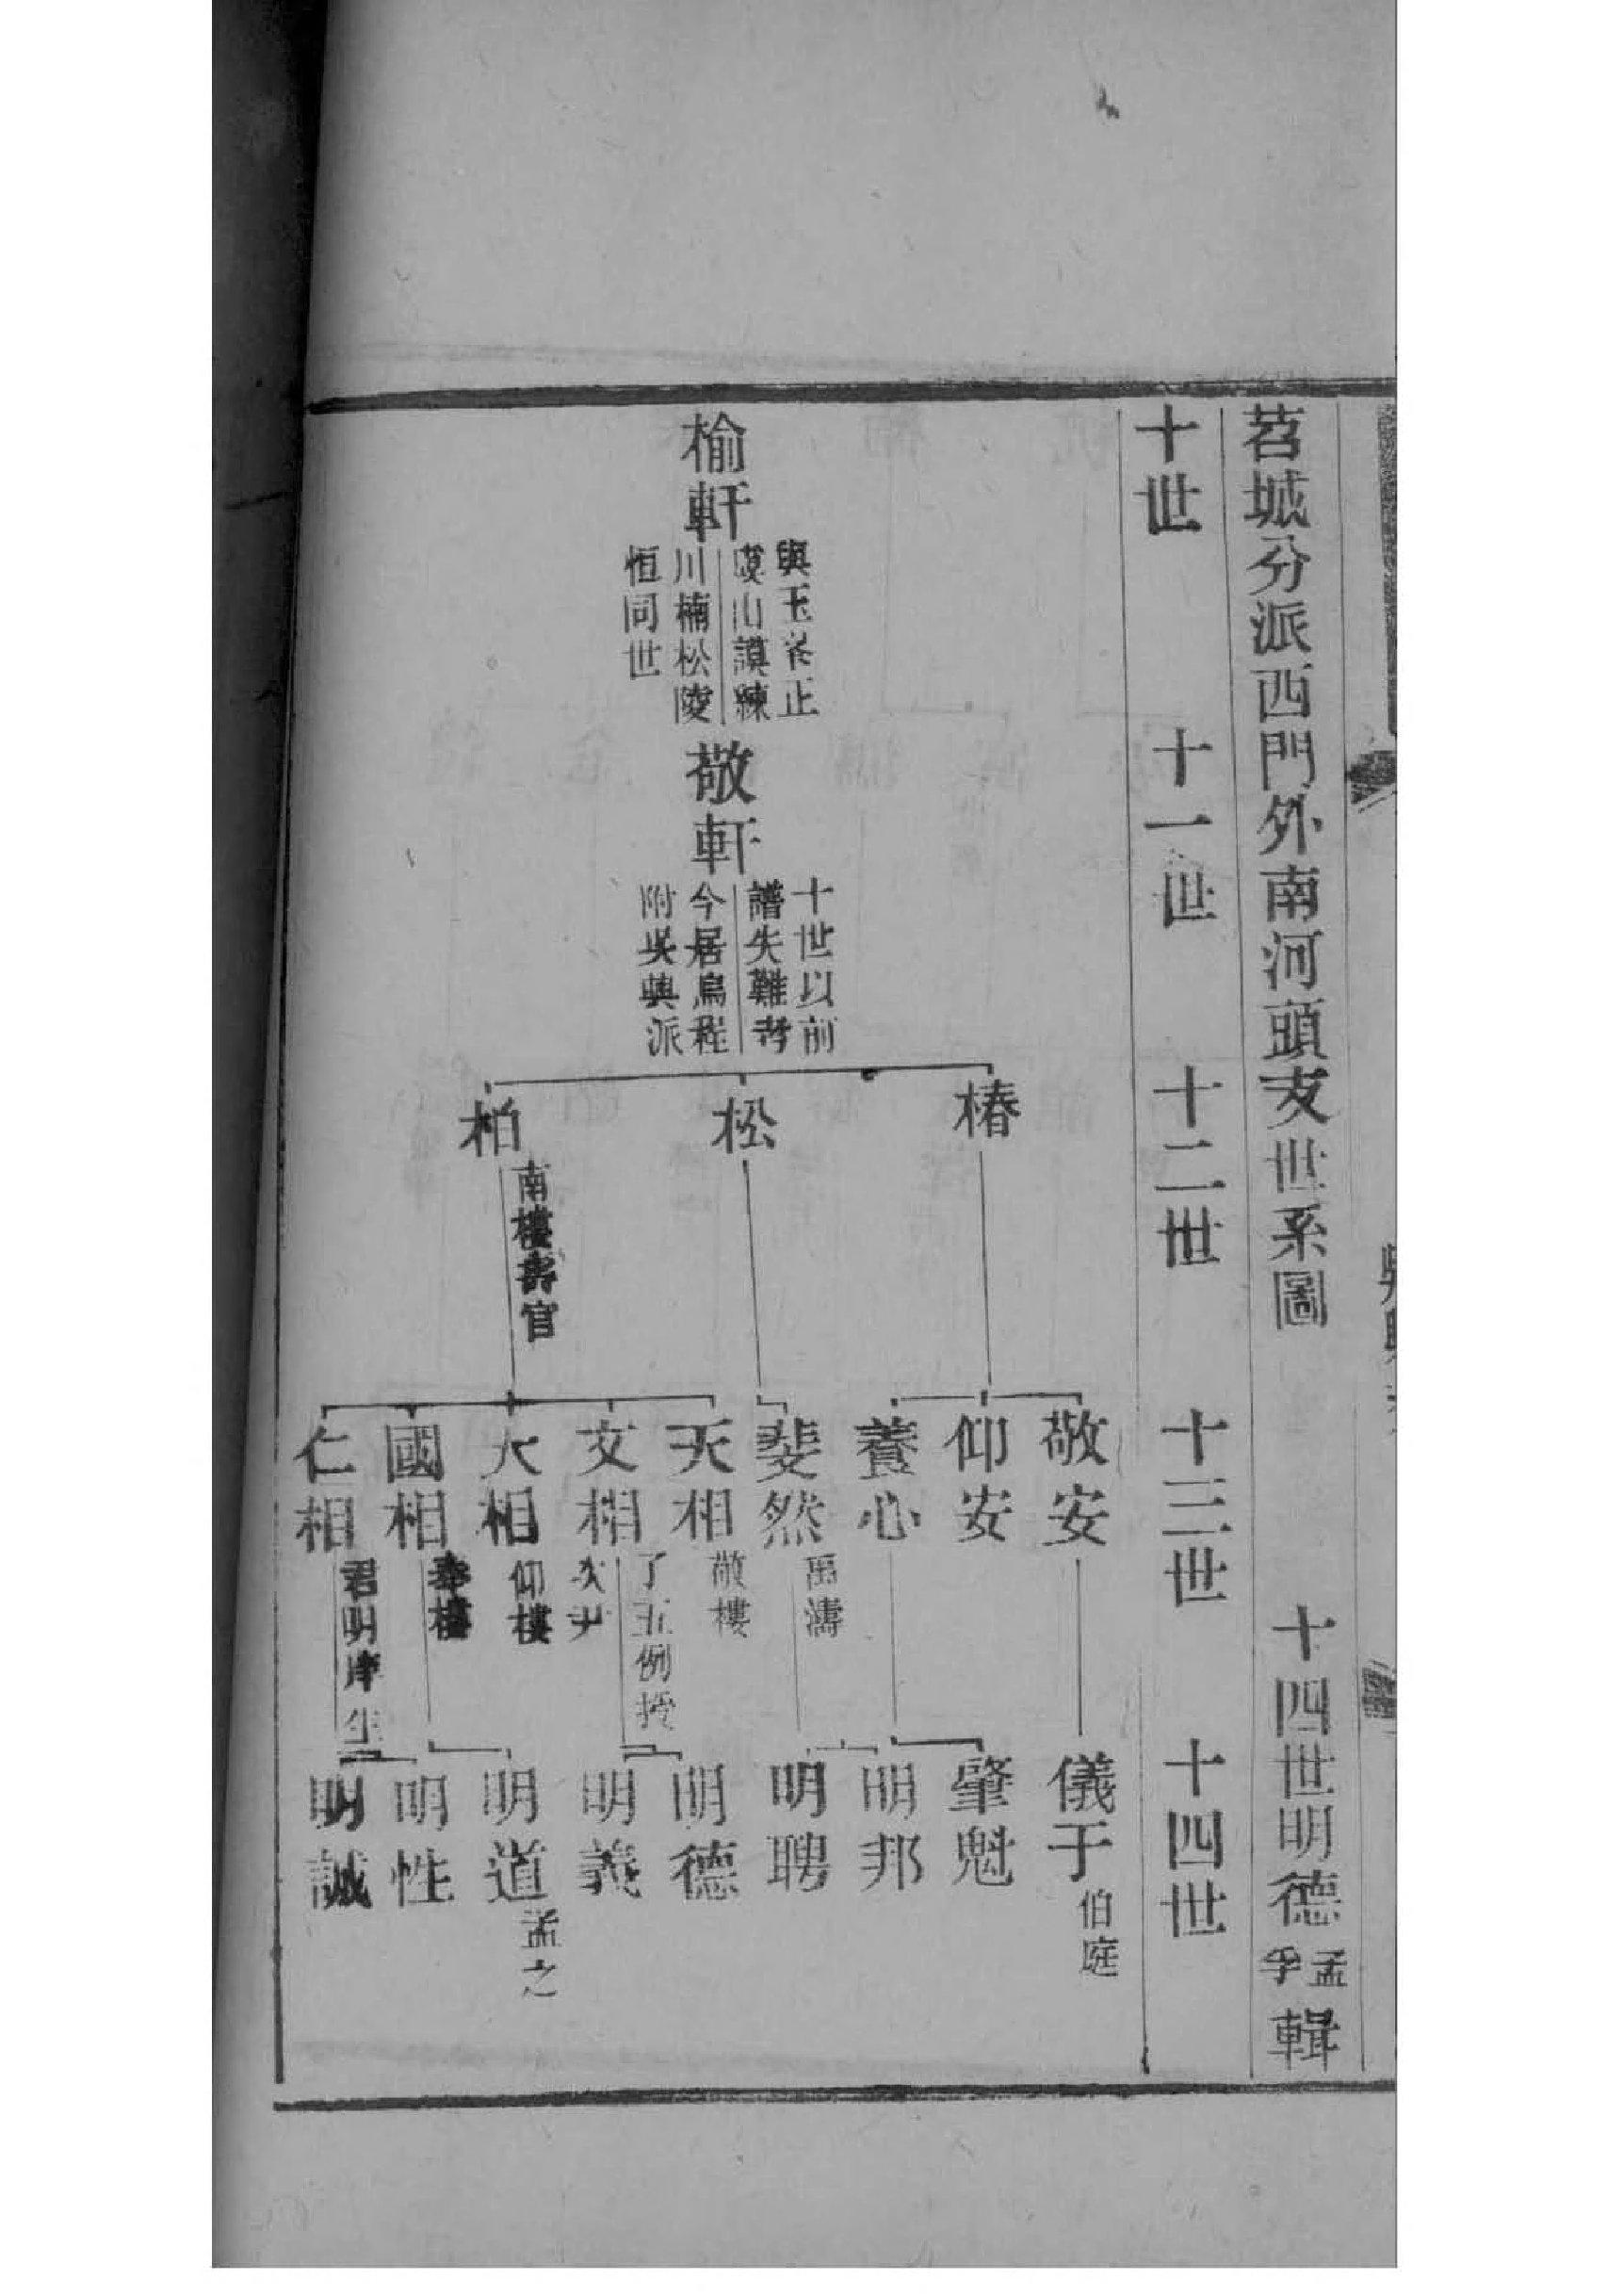 苕城分派西門外南河頭支世系圖
十四世明德孟季輯
十世
十一世
十二世
十三世
十四世
榆軒
與玉峯正
虞山謨練
川楠松陵
恒同世
敬軒
十世以前
譜失難考
今居烏程
附吳興派
椿
松
柏
南樓壽官
敬安
仰安
養心
斐然
禹濤
天相
敬樓
文相
了五例授
次尹
大相
仰樓
國相
奉樓
仁相
君明庠生
儀于
伯庭
肇魁
明邦
明聘
明德
明義
明道
孟之
明性
明誠